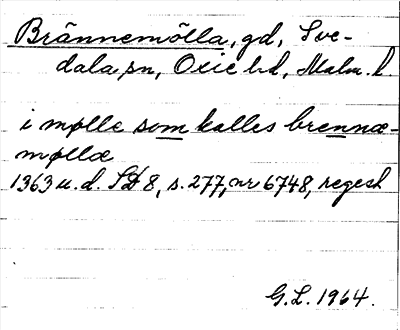 Brännemölla, gd, Sve-
dala sn, Oxie hd, Malm. l.
i mølle som kalles brennæ-
møllæ
1363 u. d. SD 8, s. 277, nr 6748, regest
G.L. 1964.